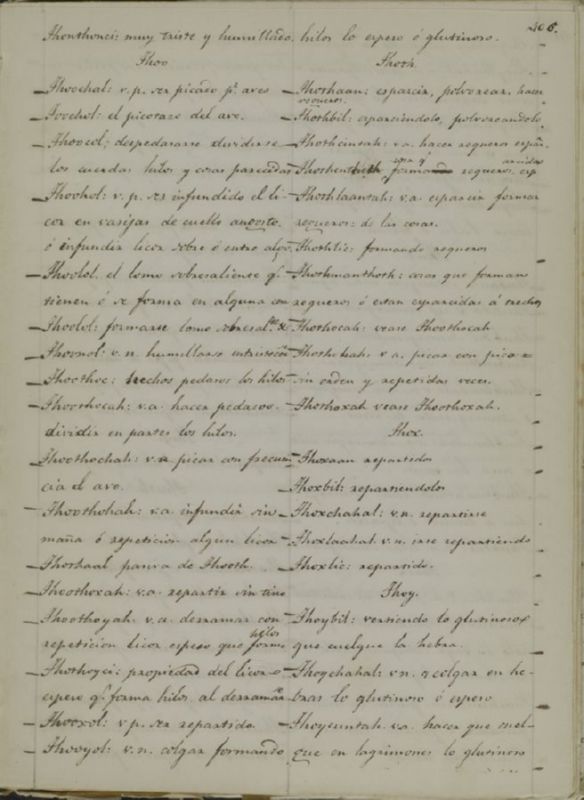 406.
Thonthonci: muy triste y humillado
Thoo
Thoochal: v.p. ser picado pr. aves
Toochol: el picotazo del ave.
Thoocol: despedazarse dividirse
los cuerdas hilos y cosas parecidas
Thoohol: v.p. ser infundido el li-
cor en vasijas de cuello angosto
ó infundir licor sobre ó entre algo
Thoolol. el lomo sobresaliente qe.
tienen ó se forma en alguna cosa
Thoolol: formarse lomo
Thoonol: v.n. humillarse
Thoothoc: hechos pedazos los hilos
Thoothocah: v.a. hacer pedazos.
dividir en partes los hilos.
Thoothochah: v.a. picar con frecuen
cia el ave.
Thoothohah: v.a. infundir sin
maña ó repeticion algun licor
Thoothaal pasiva de Thooth.
Thoothoxah: v.a. repartir sin tino
Thoothoyah. v.a. derramar con
repeticion licor espeso que forme hilos
Thothoyci: propiedad del licor
espeso qe. forma hilos al derramarse
Thooxol: v.p. ser repartido
Thooyol: v.n. colgar formando
hilos lo espeso ó glutinoso.
Thoth.
Thothaan: esparcir, polvorear, hacer
regueros.
Thothbil: esparciendolo, polvoreandolo
Thothcintah: v.a. hacer regueros
cosa qe. regueros
Thothlaantah: v.a. esparcir formar
regueros: de las cosas.
Thothlic: formando regueros
Thothmanthoth: cosas que forman
regueros ó estan esparcidas á trechos
Thothocah: vease Thoothocah
Thothohah: v.a. picar con pico
sin orden y repetidas veces.
Thothoxah vease Thoothoxah.
Thox.
Thoxaan repartidos
Thoxbil: repartiendolos
Thoxchahal: v.n. repartirse
Thoxlaahal v.n. irse repartiendo
Thoxlic: repartido.
Thoy.
Thoybil: vertiendo lo glutinoso
que cuelgue la hebra.
Thoychahal: v.n. colgar en he-
bras lo glutinoso ó espeso
Thoycuntah. v.a. hacer que cuel-
gue en lagrimones lo glutinoso